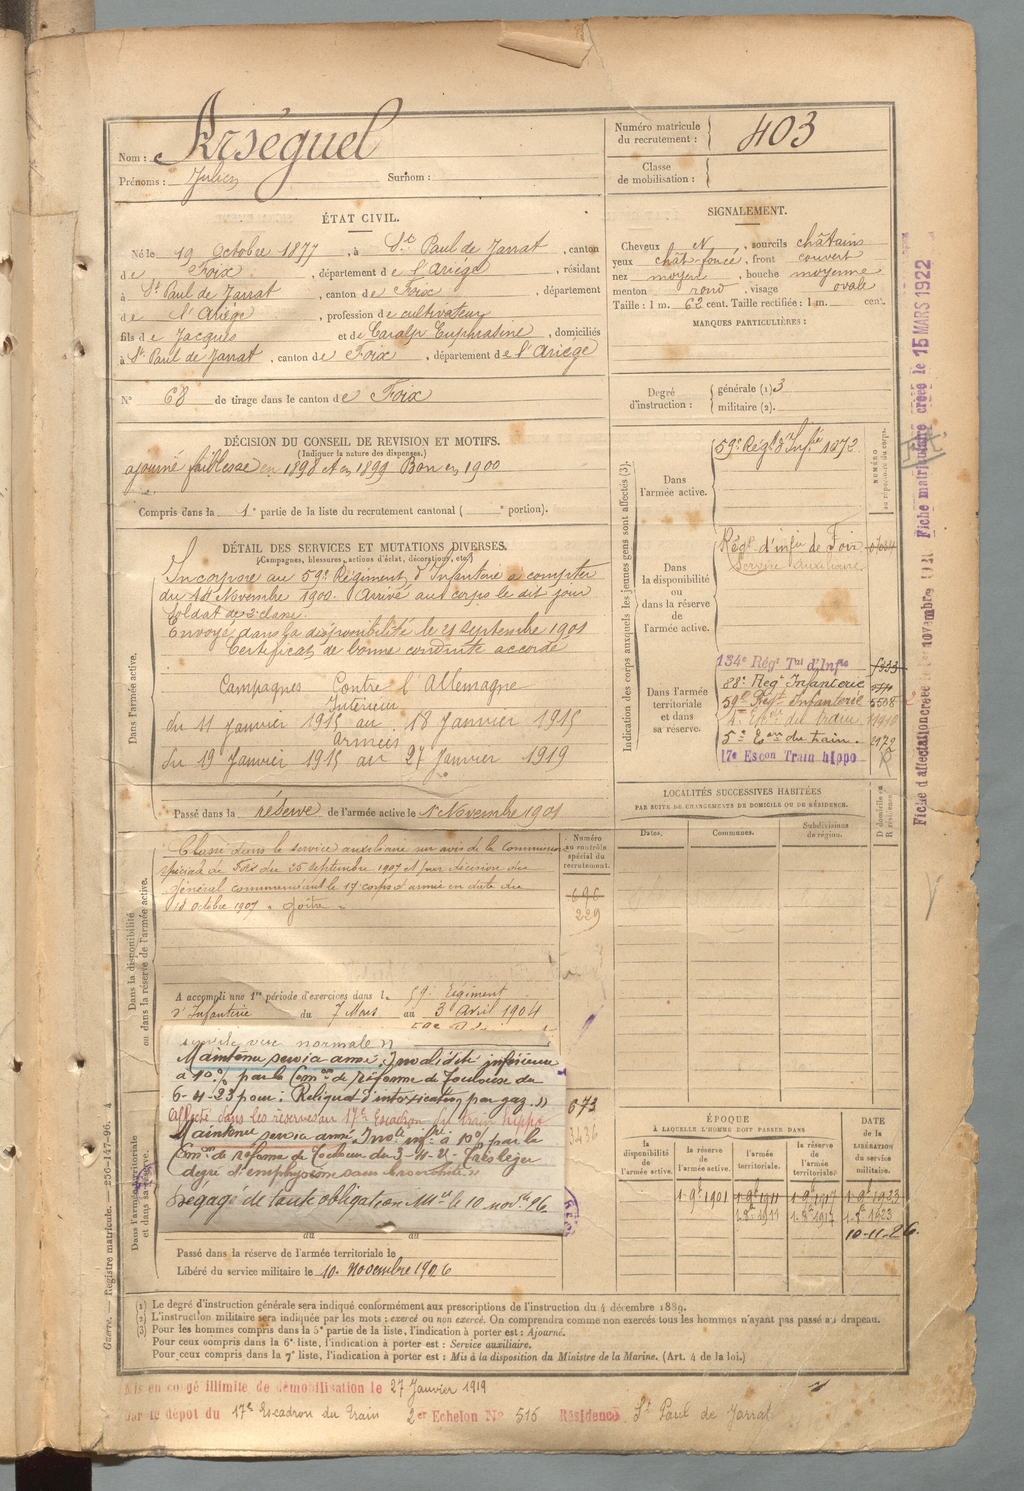 Nom : Arséguel
Prénoms : Julien Surnom :
Numéro matricule du recrutement : 403
Classe de mobilisation :
ÉTAT CIVIL.
Né le 19 Octobre 1877, à St Paul de Jarrat, canton
de Foix, département de l'Ariège, résidant
à St Paul de Jarrat, canton de Foix, département
de l'Ariège, profession de cultivateur
fils de Jacques et de Caralp Euphrasine, domiciliés
à St Paul de Jarrat, canton de Foix, département de l'Ariège
N° 68 de tirage dans le canton de Foix
SIGNALEMENT.
Cheveux N, sourcils châtains
yeux chât-foncé, front couvert
nez moyen, bouche moyenne
menton rond, visage ovale
Taille : 1 m. 62 cent. Taille rectifiée : 1 m. cent.
MARQUES PARTICULIÈRES :
Degré d'instruction : générale (1) 3
militaire (2).
DÉCISION DU CONSEIL DE REVISION ET MOTIFS.
(Indiquer la nature des dispenses.)
ajourné faiblesse en 1898 et en 1899 Bon en 1900
Compris dans la 1e partie de la liste du recrutement cantonal ( e portion).
DÉTAIL DES SERVICES ET MUTATIONS DIVERSES.
(Campagnes, blessures, actions d'éclat, décorations, etc.)
Dans l'armée active.
Incorporé au 59e Régiment d'Infanterie à compter
du 14 Novembre 1900. Arrivé au corps le dit jour
Soldat de 2e classe.
Envoyé dans la disponibilité le 21 septembre 1901
Certificat de bonne conduite accordé
Campagnes Contre l'Allemagne
Intérieur
du 11 Janvier 1915 au 18 Janvier 1915
armées
du 19 Janvier 1915 au 27 Janvier 1919
Passé dans la réserve de l'armée active le 1er Novembre 1901
Indication des corps auxquels les jeunes gens sont affectés (3).
NUMÉRO au répertoire du corps.
Dans l'armée active.
59e Régt d'Infie 1072
Dans la disponibilité ou dans la réserve de l'armée active.
Régt d'infie de Foix
Service Auxiliaire.
Dans l'armée territoriale et dans sa réserve.
134e Régt Tal d'Infie
88e Régt Infanterie
59e Régt Infanterie 5508
5e Eon du train.
17e Escon Train hippo
LOCALITÉS SUCCESSIVES HABITÉES
PAR SUITE DE CHANGEMENTS DE DOMICILE OU DE RÉSIDENCE.
Dates. Communes. Subdivisions de région. D domicile ou R résidence.
Dans la disponibilité ou dans la réserve de l'armée active.
Numéro au contrôle spécial du recrutement.
Classé dans le service auxiliaire sur avis de la commission
spéciale de Foix du 25 septembre 1907 et par décision du
Général commandant le 17 corps d'armée en date du
12 octobre 1907 "Goitre"
696
229
A accompli une 1re période d'exercices dans l 59e régiment
d'Infanterie du 7 Mars au 3 avril 1904
Dans l'armée territoriale et dans sa réserve.
normale »
Maintenu service armé, Invalidité inférieure
à 10% par la Comon de réforme de Toulouse du
6-4-23 pour : Reliquat d'intoxication par gaz. »
Affecté dans les réserves au 17e Escadron du train hippo
Maintenu service armé Invté infre à 10% par la
Comon de réforme de Toulouse du
degré d'emphysème sans bronchite »
Dégagé de toute obligation Mre le 10 novbre 26.
673
3436
Passé dans la réserve de l'armée territoriale le
Libéré du service militaire le 10 Novembre 1926
ÉPOQUE
À LAQUELLE L'HOMME DOIT PASSER DANS
la disponibilité de l'armée active. la réserve de l'armée active. l'armée territoriale. la réserve de l'armée territoriale.
DATE de la LIBÉRATION du service militaire.
1-9bre 1901 1-9bre 1911 1-9bre 1917 1-9bre 1923
10-11-26.
(1) Le degré d'instruction générale sera indiqué conformément aux prescriptions de l'instruction du 4 décembre 1889.
(2) L'instruction militaire sera indiquée par les mots : exercé ou non exercé. On comprendra comme non exercés tous les hommes n'ayant pas passé au drapeau.
(3) Pour les hommes compris dans la 5e partie de la liste, l'indication à porter est : Ajourné.
Pour ceux compris dans la 6e liste, l'indication à porter est : Service auxiliaire.
Pour ceux compris dans la 7e liste, l'indication à porter est : Mis à la disposition du Ministre de la Marine. (Art. 4 de la loi.)
Guerre. — Registre matricule. — 256-147-96. 4
Mis en congé illimité de démobilisation le 27 Janvier 1919
par le dépôt du 17e Escadron du Train 2er Echelon No 516 Résidence St Paul de Jarrat
Fiche matriculaire créée le 15 MARS 1922
Fiche d'affectation créée le novembre